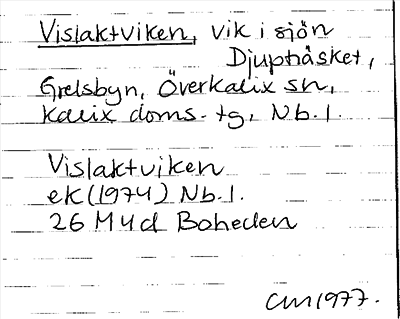 Vislaktviken, vik i sjön
Djuphåsket,
Grelsbyn, Överkalix sn,
Kalix doms. tg, Nb. l.
Vislaktviken
ek (1974) Nb. l.
26 M 4d Boheden
CM 1977.